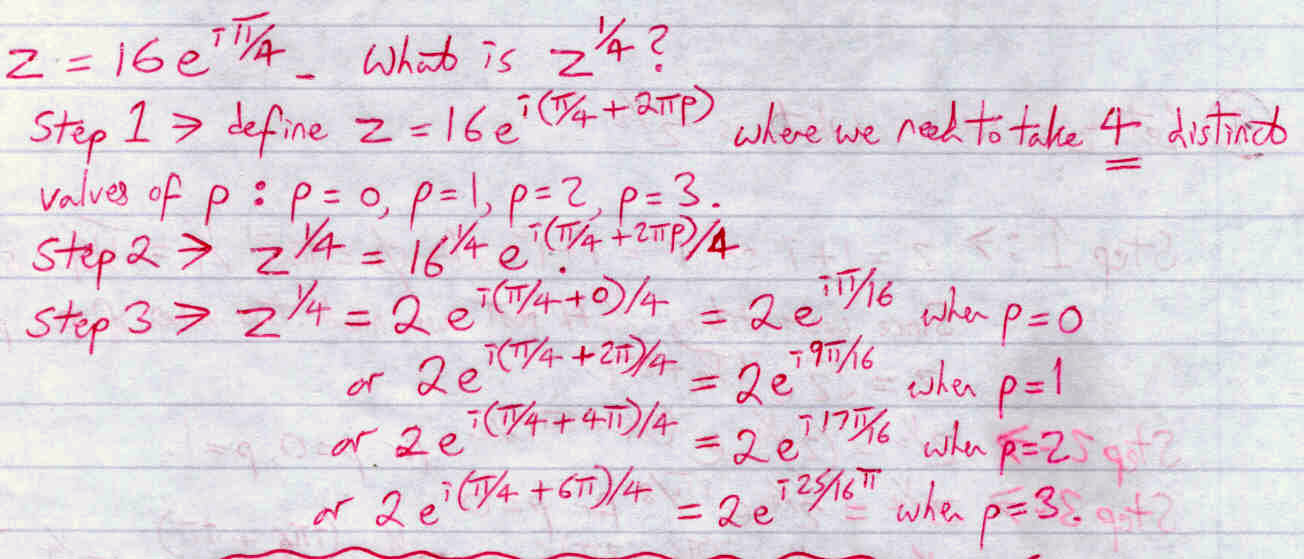 z = 16e^{iπ/4}. What is z^{1/4}?
Step 1 ⇒ define z = 16e^{i(π/4 + 2πp)} where we need to take 4 distinct
values of p : p = 0, p = 1, p = 2, p = 3.
Step 2 ⇒ z^{1/4} = 16^{1/4} e^{i(π/4 + 2πp)/4}
Step 3 ⇒ z^{1/4} = 2e^{i(π/4 + 0)/4} = 2e^{iπ/16} when p = 0
or 2e^{i(π/4 + 2π)/4} = 2e^{i9π/16} when p = 1
or 2e^{i(π/4 + 4π)/4} = 2e^{i17π/16} when p = 2
or 2e^{i(π/4 + 6π)/4} = 2e^{i25/16 π} when p = 3.